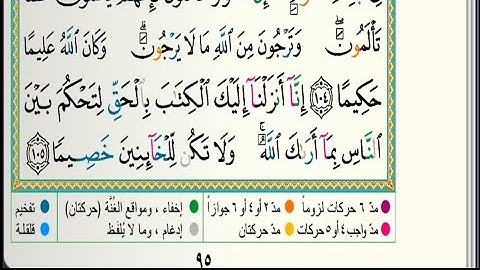 تَأْلَمُونَ ۖ وَتَرْجُونَ مِنَ ٱللَّهِ مَا لَا يَرْجُونَ ۗ وَكَانَ ٱللَّهُ عَلِيمًا
حَكِيمًا ١٠٤ إِنَّآ أَنزَلْنَآ إِلَيْكَ ٱلْكِتَٰبَ بِٱلْحَقِّ لِتَحْكُمَ بَيْنَ
ٱلنَّاسِ بِمَآ أَرَىٰكَ ٱللَّهُ ۚ وَلَا تَكُن لِّلْخَآئِنِينَ خَصِيمًا ١٠٥
مدّ ٦ حركات لزوماً مدّ ٢ أو ٤ أو ٦ جوازاً إخفاء، ومواقع الغُنَّة (حركتان) تفخيم
مدّ واجب ٤ أو ٥ حركات مدّ حركتان إدغام، وما لا يُلفَظ قلقلة
٩٥